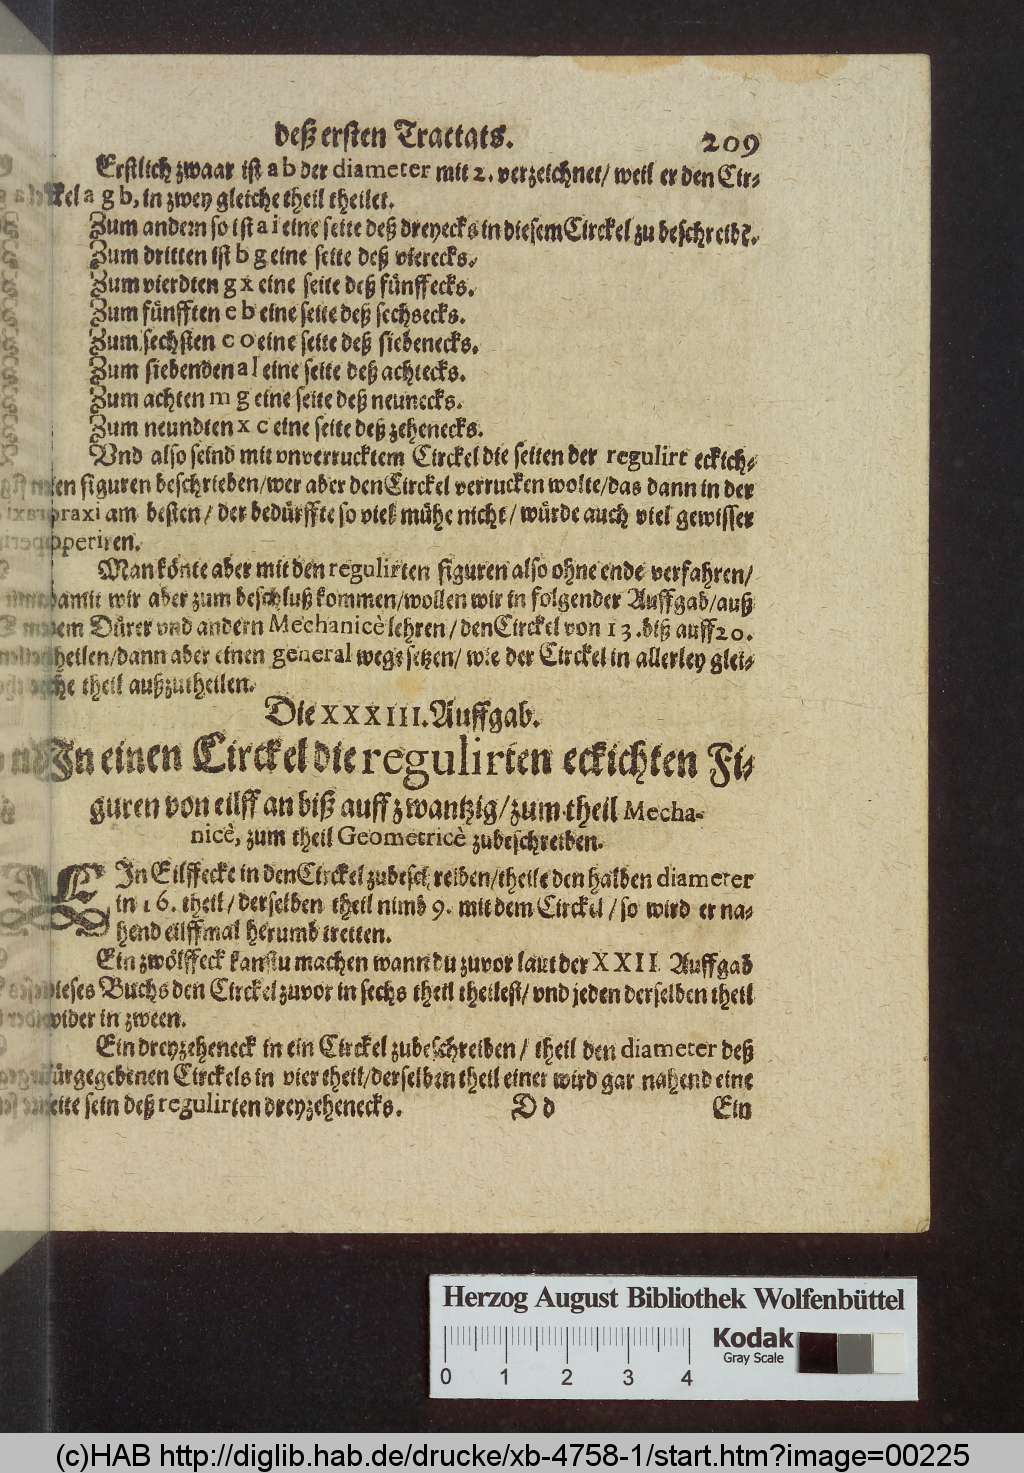 deß ersten Tractats. 209
Erstlich zwaar ist a b der diameter mit 2. verzeichnet/ weil er den Cir-
ckel a g b, in zwey gleiche theil theilet.
Zum andern so ist a i eine seite deß dreyecks in diesem Circkel zu beschreibē.
Zum dritten ist b g eine seite deß vierecks.
Zum vierdten g x eine seite deß fünffecks.
Zum fünfften e b eine seite deß sechsecks.
Zum sechsten c o eine seite deß siebenecks.
Zum siebenden a l eine seite deß achtecks.
Zum achten m g eine seite deß neunecks.
Zum neundten x c eine seite deß zehenecks.
Vnd also seind mit vnverrucktem Circkel die seiten der regulirt eckich-
ten figuren beschrieben/ wer aber den Circkel verrucken wolte/ das dann in der
praxi am besten/ der bedürffte so viel mühe nicht/ würde auch viel gewisser
operiren.
Man könte aber mit den regulirten figuren also ohne ende verfahren/
damit wir aber zum beschluß kommen/ wollen wir in folgender Auffgab/ auß
dem Dürer vnd andern Mechanicè lehren/ den Circkel von 13. biß auff 20.
theilen/ dann aber einen general wege setzen/ wie der Circkel in allerley glei-
che theil außzutheilen.
Die XXXIII. Auffgab.
In einen Circkel die regulirten eckichten Fi-
guren von eilff an biß auff zwantzig/ zum theil Mecha-
nicè, zum theil Geometricè zubeschreiben.
EIn Eilffecke in den Circkel zubeschreiben/ theile den halben diameter
in 16. theil/ derselben theil nimb 9. mit dem Circkel/ so wird er na-
hend eilffmal herumb tretten.
Ein zwölffeck kanstu machen wann du zuvor laut der XXII Auffgab
dieses Buchs den Circkel zuvor in sechs theil theilest/ vnd jeden derselben theil
wider in zween.
Ein dreyzeheneck in ein Circkel zubeschreiben/ theil den diameter deß
fürgegebenen Circkels in vier theil/ derselben theil einer wird gar nahend eine
seite sein deß regulirten dreyzehenecks. D d Ein
Herzog August Bibliothek Wolfenbüttel
Kodak
Gray Scale
0 1 2 3 4
(c)HAB http://diglib.hab.de/drucke/xb-4758-1/start.htm?image=00225